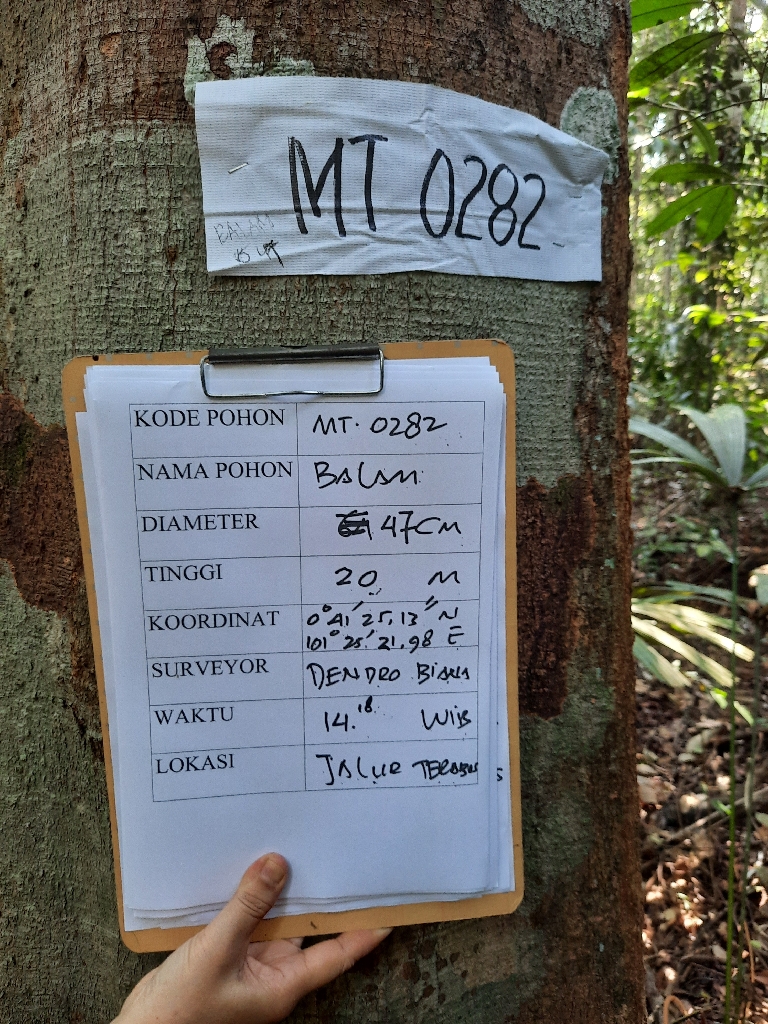 MT 0282
BALAM
KODE POHON MT. 0282
NAMA POHON BALAM
DIAMETER 47 CM
TINGGI 20 M
KOORDINAT 0° 41' 25,13" N
101° 25' 21,98 E
SURVEYOR DENDRO BIANA
WAKTU 14.18 WIB
LOKASI JALUR